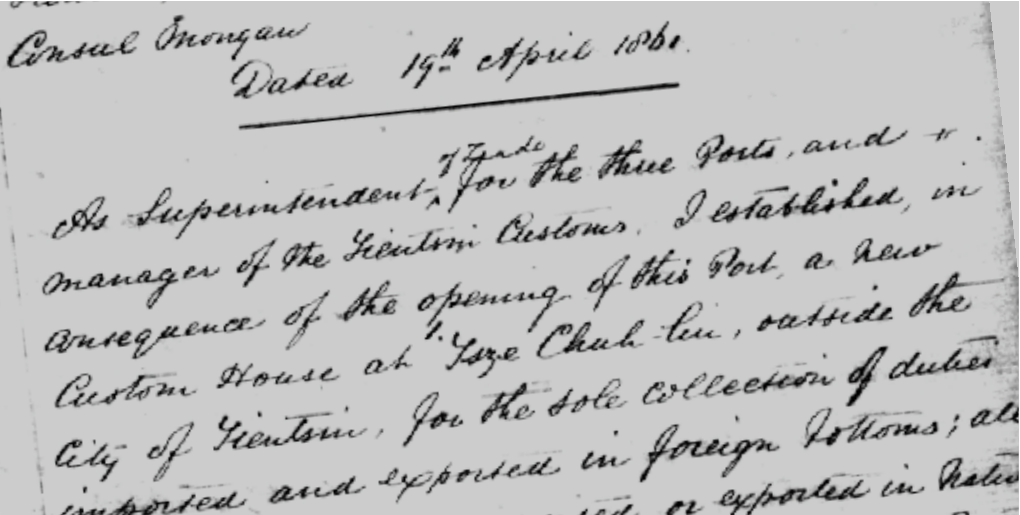 Consul Mongan
Dated 19th April 1861.
of Trade
As Superintendent, for the three Ports, and
manager of the Tientsin Customs, I established, in
consequence of the opening of this Port, a new
Custom House at Tsze Chuh-lin, outside the
City of Tientsin, for the sole collection of duties
imported and exported in foreign bottoms; all
or exported in Native